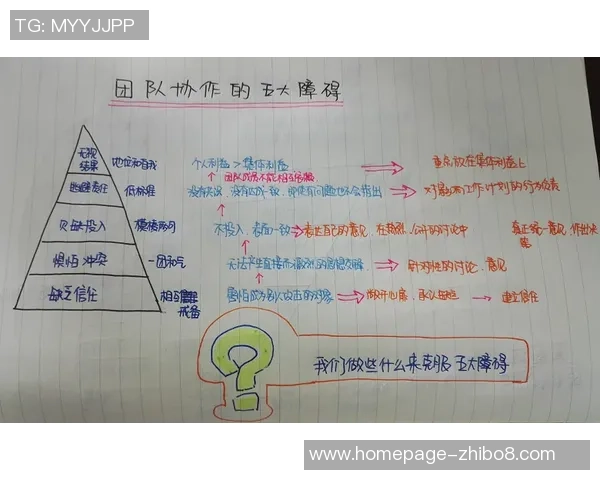 TG: MYYJJPP
团队协作的五大障碍
无视结果 地位和自我 个人利益 > 集体利益 重点放在集体利益上
团队成员不能相互
逃避责任 低标准 没有达成一致，即使有问题也不会指出 对
欠缺投入 模棱两可 不投入，表面一致 表达自己的意见，在激烈、公开的讨论中 真正统一意见，作出决策
惧怕冲突 一团和气 无法产生直接而激烈的思想交锋 针对性的讨论、意见
缺乏信任 相互戒备 害怕成为别人攻击的对象 敞开心扉，承认 建立信任
我们做些什么来克服五大障碍
www.homepage-zhibo8.com